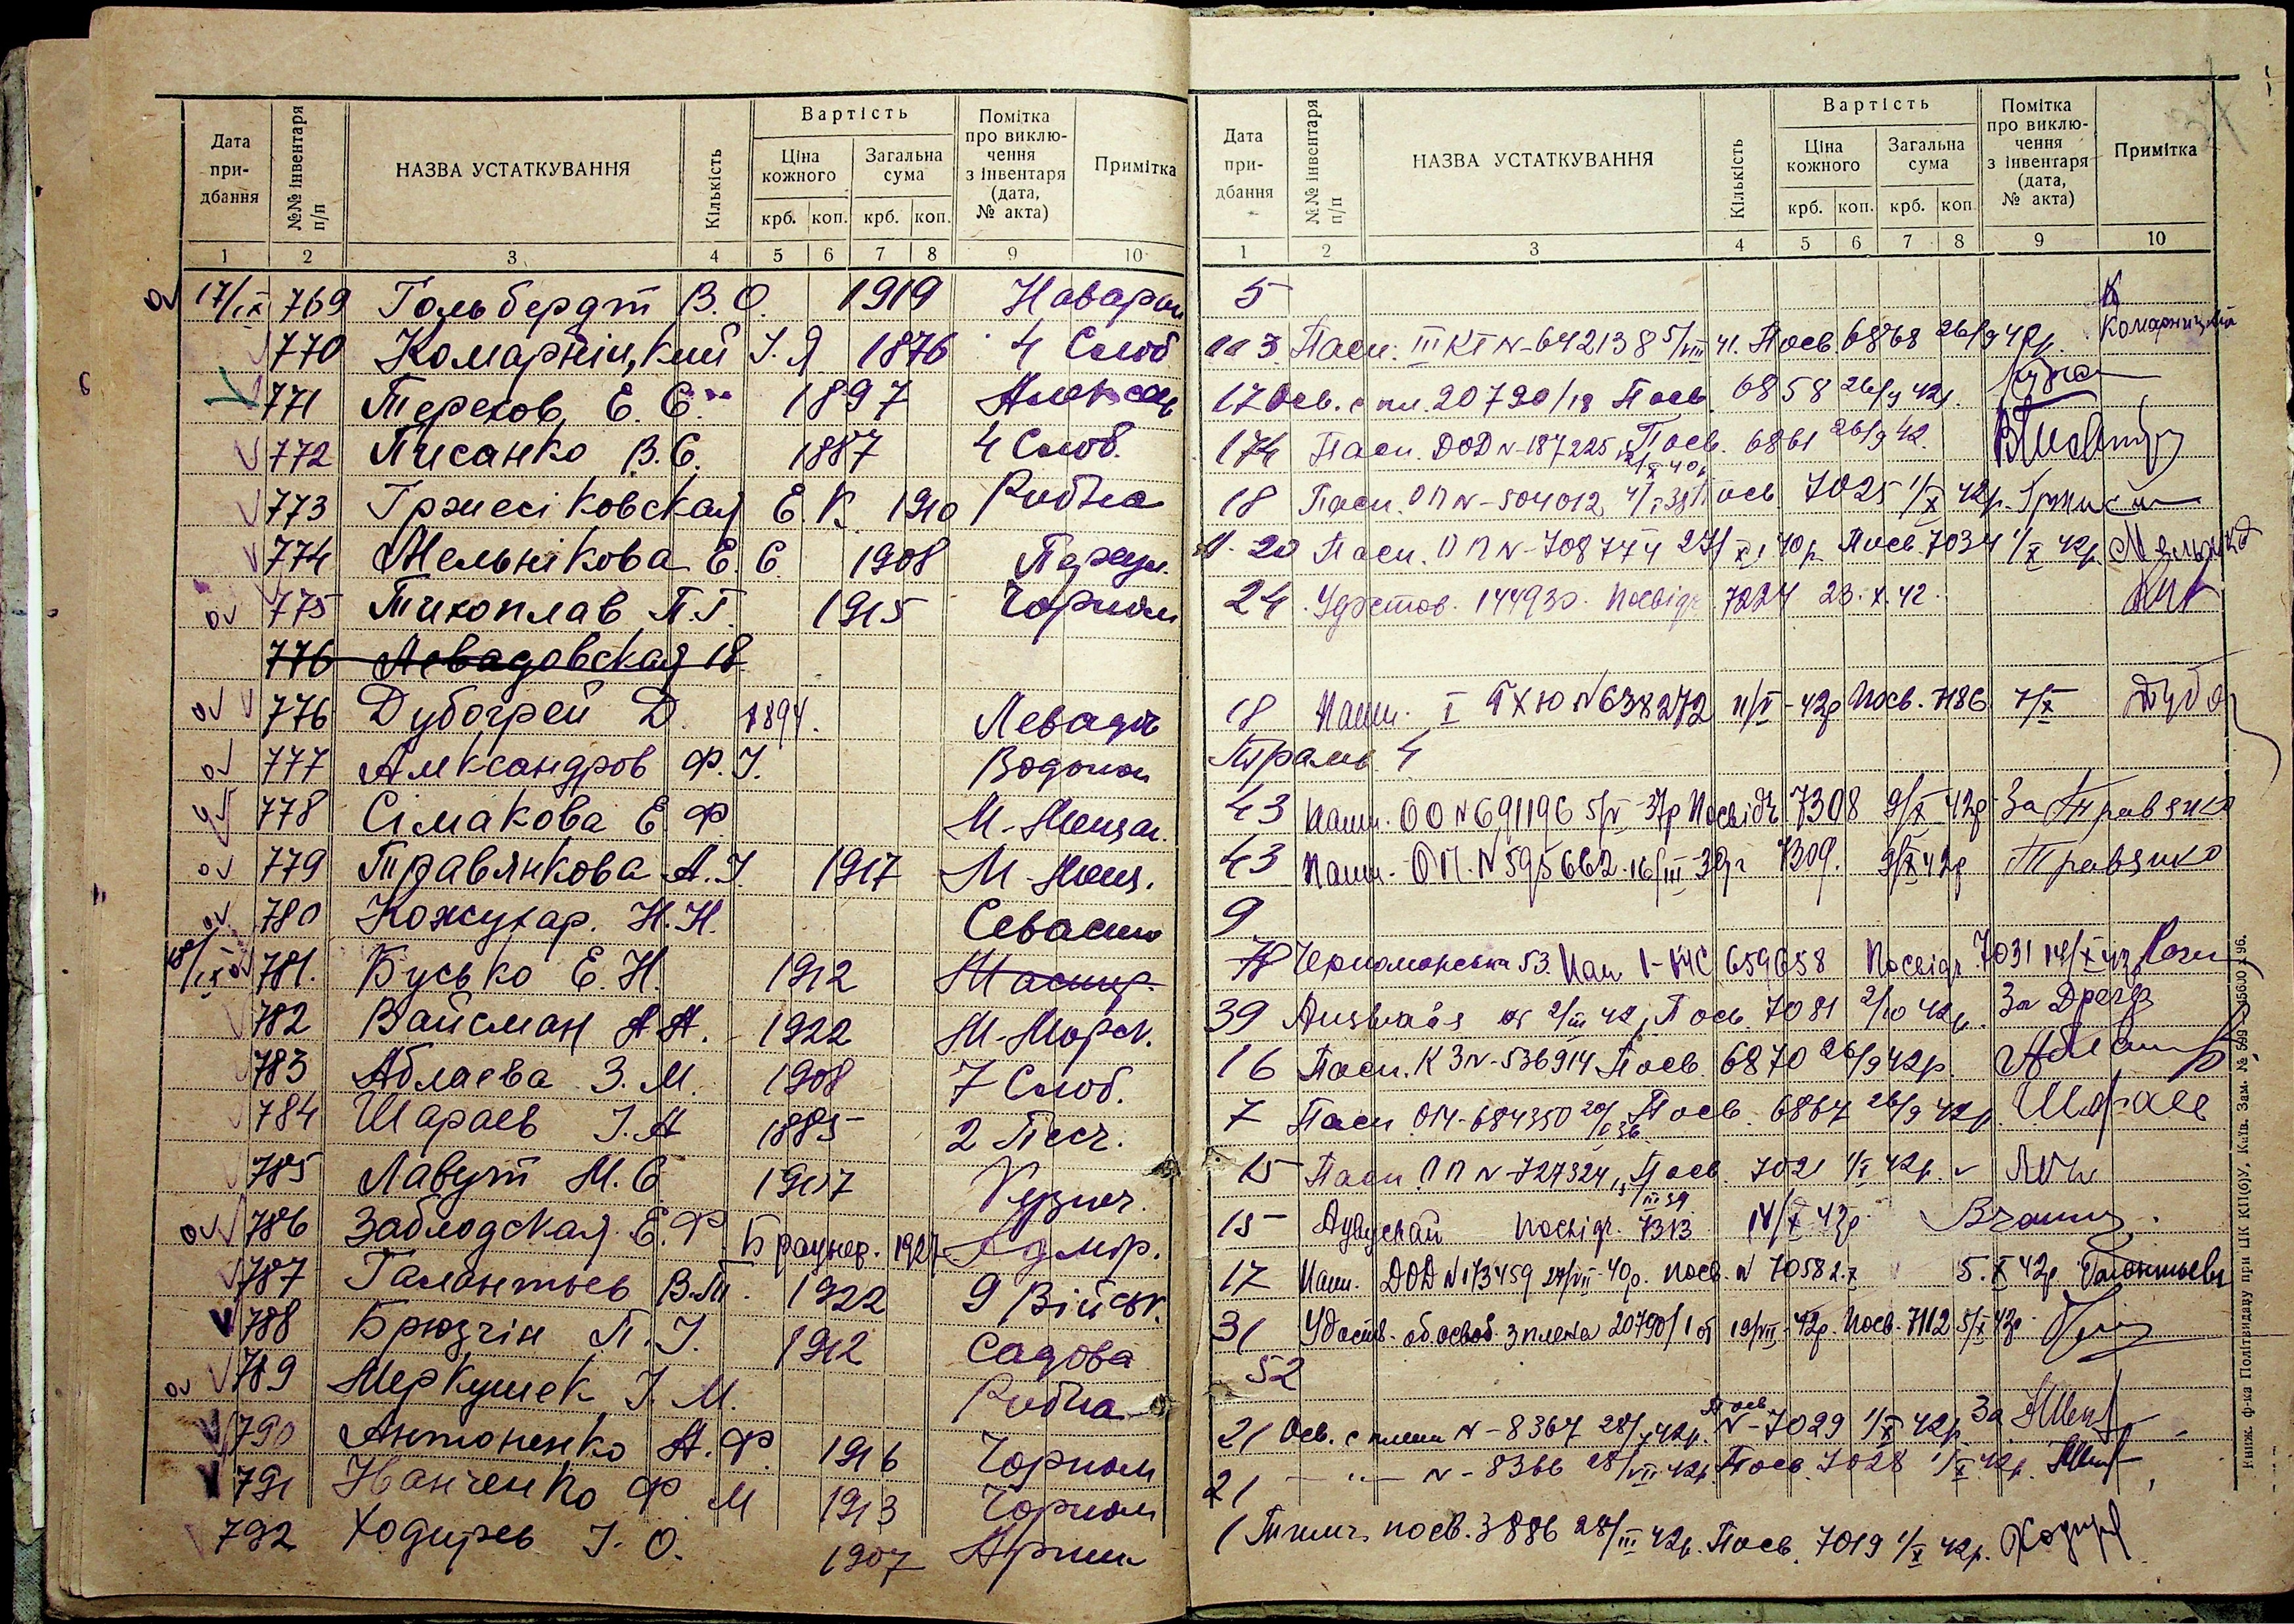 Дата при-дбання №№ інвентаря п/п НАЗВА УСТАТКУВАННЯ Кількість Вартість Ціна кожного Загальна сума крб. коп. крб. коп. Помітка про виклю-чення з інвентаря (дата, № акта) Примітка
1 2 3 4 5 6 7 8 9 10
17/IX 769 Гольбердт В.О. 1919
770 Комарніцкий І.Я 1876 4 Слоб
771 Терехов Е.С. 1897 Алексан
772 Писанко В.С. 1887 4 Слоб.
773 Гржесіковская Е.К. 1910 Рибна
774 Мельнікова Е.С. 1908
775 Тихоплав П.Г. 1915 Чорном
776 Левадовская 18
776 Дубогрей Д. 1894. Левадн
777 Александров Ф.І.
778 Сімакова Е Ф М-Мещан.
779 Травянкова А.І. 1917 М-Мещ.
780 Кожухар. Н.Н.
18/IX 781. Бусько Е.Н. 1912
782 Вайсман А.А. 1922 М-Морск.
783 Аблаева З.М. 1908 7 Слоб.
784 Шараев І.А 1885 2 Песч.
785 Лавут М.С 1917 Кузнеч.
786 Заблодская Е.Ф Браунер. 1927 Адмір.
787 Галантьев В.М. 1922 9 Військ.
788 Брюзгін П.І. 1912 Садова
789 Меркушек І.М. Рибна
790 Антоненко А.Ф. 1916 Чорном
791 Иванченко Ф М 1913 Чорном
792 Ходирев І.О. 1907
Дата при-дбання №№ інвентаря п/п НАЗВА УСТАТКУВАННЯ Кількість Вартість Ціна кожного Загальна сума крб. коп. крб. коп Помітка про виклю-чення з інвентаря (дата, № акта) Примітка
1 2 3 4 5 6 7 8 9 10
5
3 Пасп. III КГ N-642138 5/VIII 41. Посв. 6868 26/9 42р. Комарницкий
17 Осв. с пл. 20790/18 Посв. 6858 26/9 42р.
174 Пасп. DOD N-187225 Посв. 6861 26/9 42.
18 Пасп. ОП N-504012 Посв 7025 1/X 42р.
20 Пасп. ОП N-708774 27/XI 40р Посв. 7034 1/X 42р.
24. Удостов. 144930. Посвідч. 7224 23.X.42.
18 Пашп. I ГХЮ N638272 11/V-42р Посв. 7186 7/X
Трамв. 4
43 Пашп. ОО N691196 5/V 37р Посвідч 7308 9/X 42р. За Травянко
43 Пашп. ОП. N595662. 16/III-39г 7309. 9/X 42р Травянко
9
Черноморська 53. 659658 Посвідч. 7031
39 Ausweis от 2/III 42, Посв. 7081 2/10 42р.
16 Пасп. КЗ N-536914 Посв. 6870 26/9 42р.
7 Пасп. 684350 Посв. 6867 26/9 42р. Шараев
15 Пасп. ОП N-727324, Посв. 7021 1/X 42р.
15 Посвідч. 7313 42р
17 Пашп. DOD N173459 27/VII-40р. посв. N 7058 2.X 5.X 42р Галантьев
31 Удостов. об. освоб. з плена 20790/1 от 19/VII-42р. Посв. 7112 5/X 42р
52
21 Осв. с плена N-8367 28/VII 42р. Посв N-7029 1/X 42р За
21 — " — N-8366 28/VII 42р. Посв. 7028 1/X 42р.
1 посв. 3886 28/III 42р. Посв. 7019 1/X 42р. Ходирев
Книж. ф-ка Політвидаву при ЦК КП(б)У. Київ. Зам. № 599